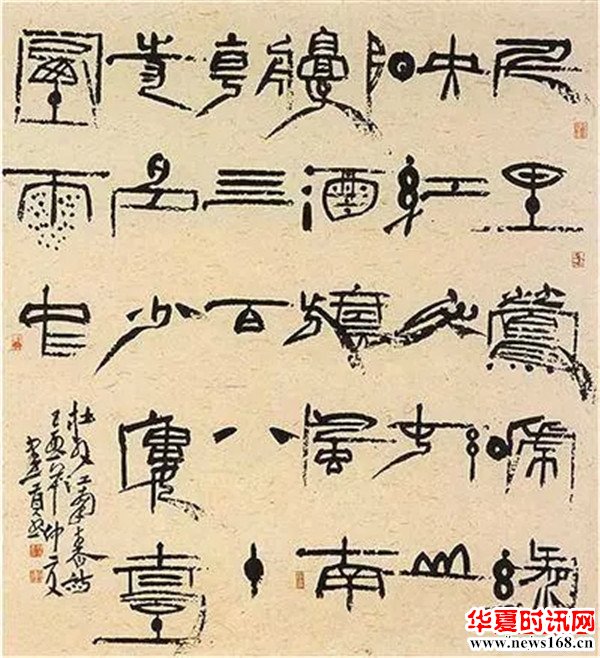 千里鶯啼綠
映紅水村山
郭酒旗風南
朝四百八十
寺多少樓臺
煙雨中
杜牧江南春詩
酉年仲夏
华夏时讯网
www.news168.cn